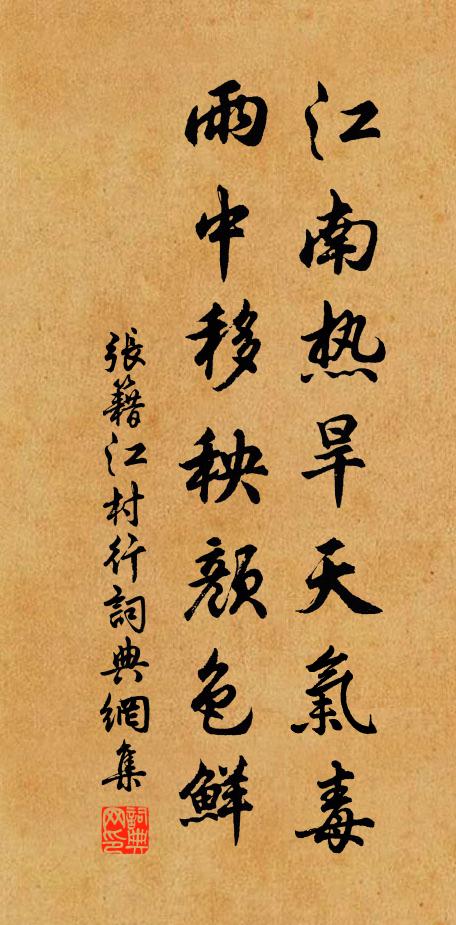 江南热旱天氣毒
雨中移秧顏色鮮
張籍江村行詞典網集
詞典网印